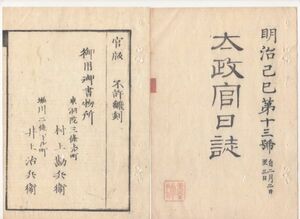 明治己巳第十三號
自二月二日
至三日
太政官日誌
官版
不許飜刻
御用御書物所
東洞院三條上町
村上勘兵衛
堀川二條下ル町
井上治兵衛